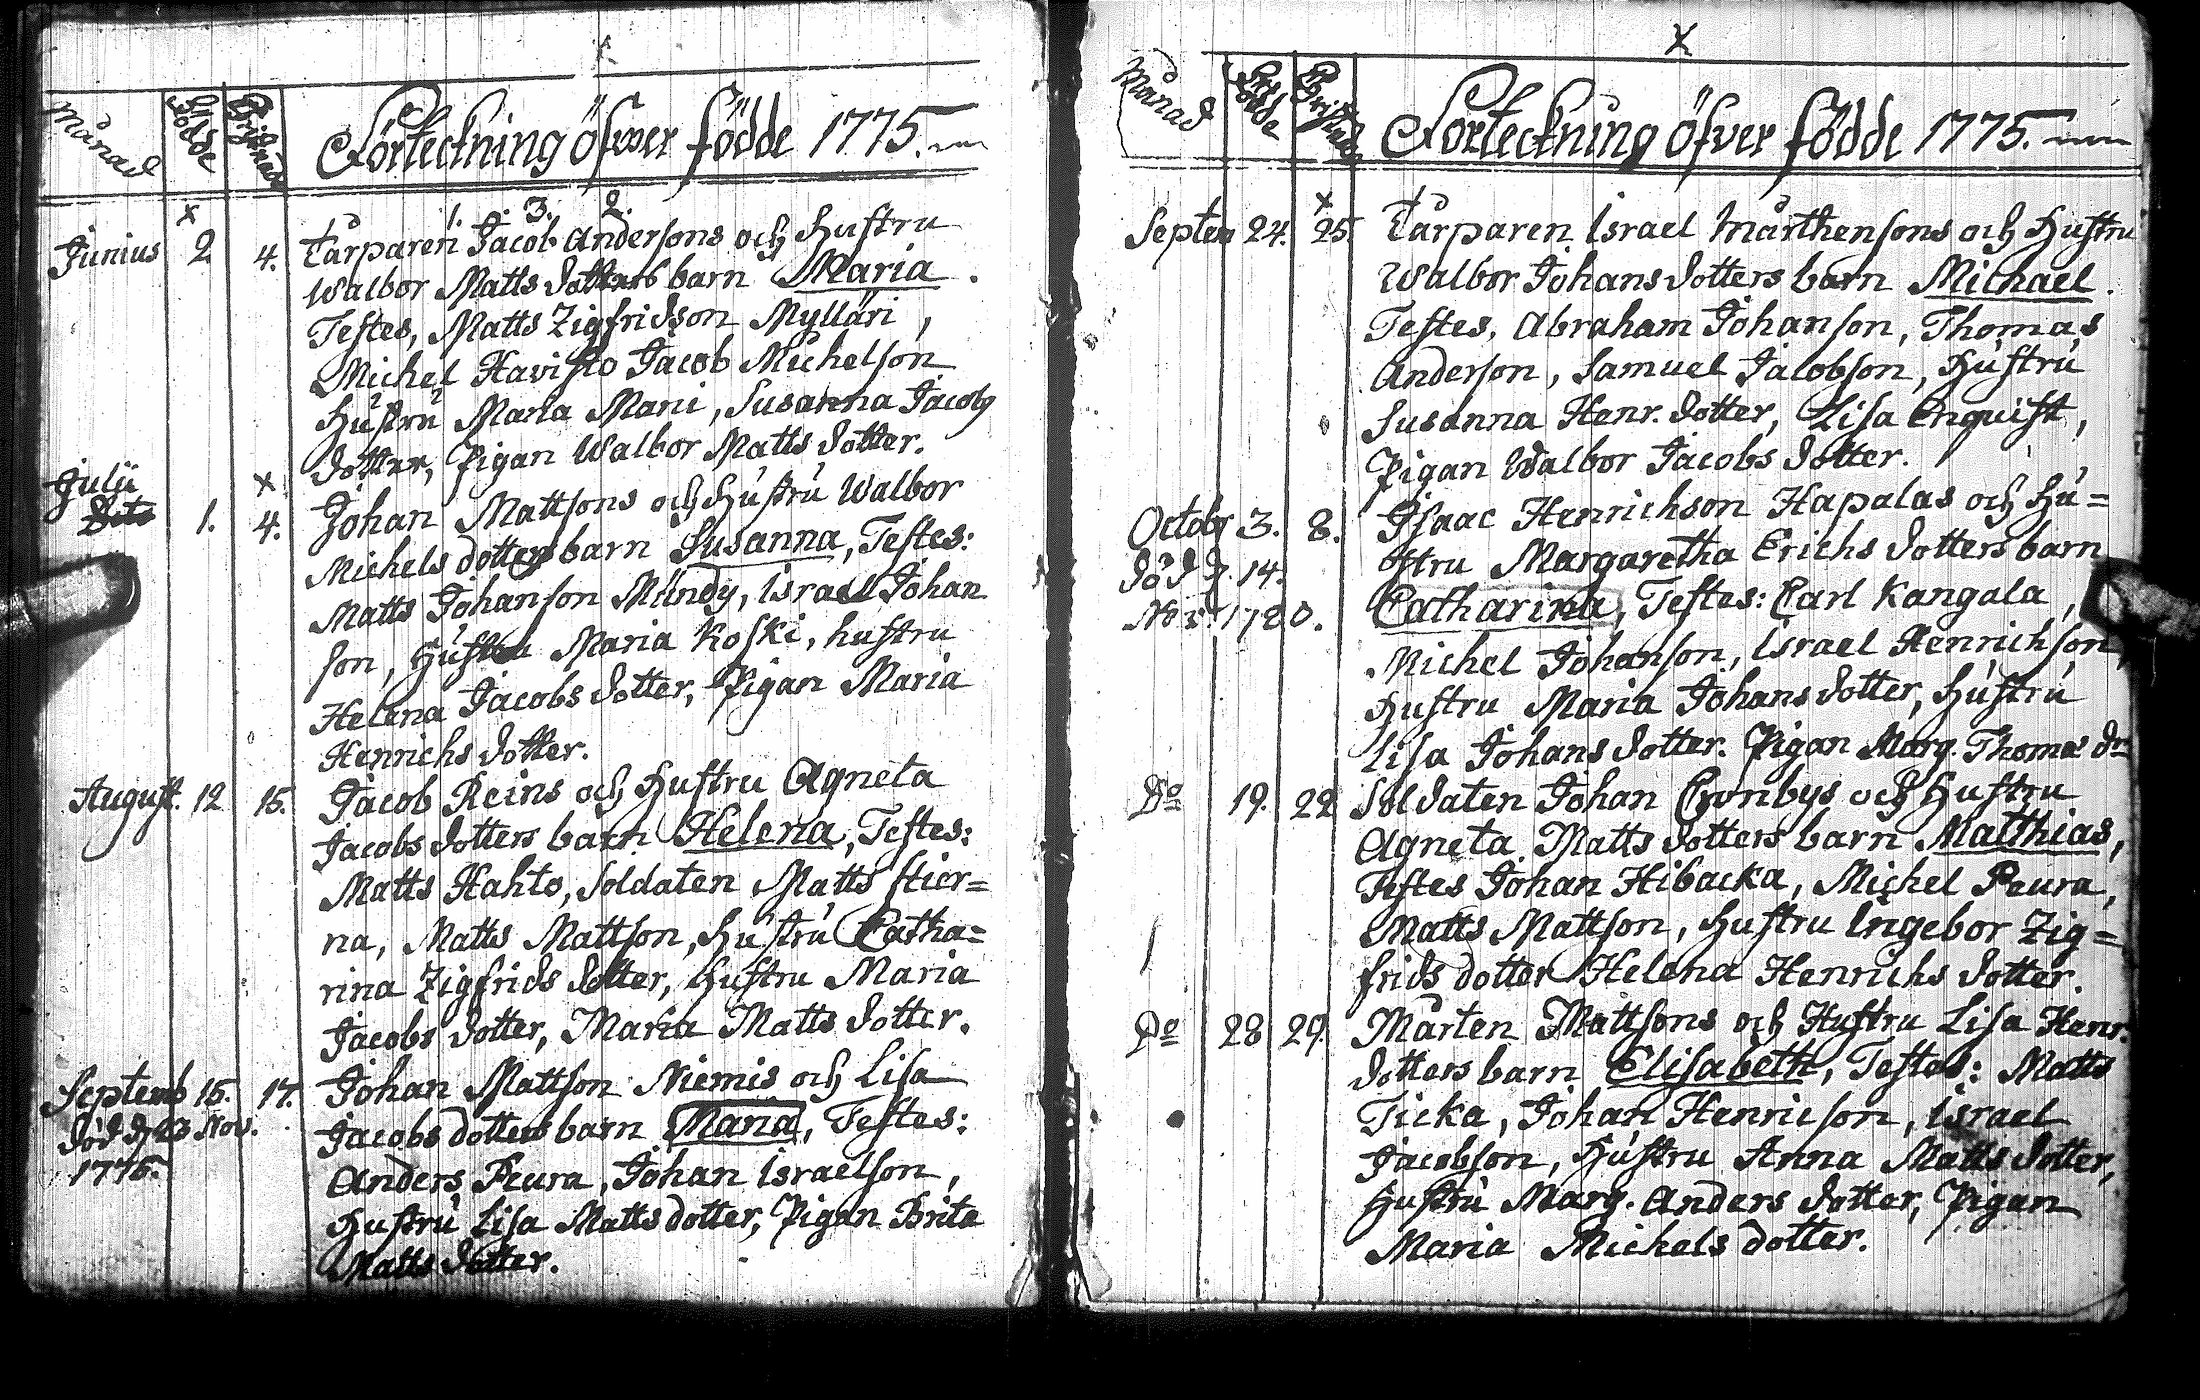 Månad Födde Christnade Förteckning öfwer födde 1775.
1. 3. 2.
Junius 2 4. Tårparen Jacob Andersons och Hustru
Walbor Matts dotters barn Maria.
Testes, Matts Zigfridson Mylläri,
Michel Havisto Jacob Michelson
Hustru Maria Mani, Susanna Jacobs
dotter, Pigan Walbor Matts dotter.
Julii
Dito 1. 4. Johan Mattsons och Hustru Walbor
Michels dotters barn Susanna, Testes:
Matts Johanson Mündy, Israel Johan
son, Hustru Maria Koski, hustru
Helena Jacobs dotter, Pigan Maria
Henrichs dotter.
August. 12 15. Jacob Reins och Hustru Agneta
Jacobs dotters barn Helena, Testes:
Matts Hahto, Soldaten Matts Stier=
na, Matts Mattson, Hustru Catha=
rina Zigfrids dotter, Hustru Maria
Jacobs dotter, Maria Matts dotter.
Septemb 15. 17. Johan Mattson Niemis och Lisa
död d. 23 Nov. Jacobs dotters barn Maria, Testes:
1775. Anders Peura, Johan Israelson,
Hustru Lisa Matts dotter, Pigan Brita
Matts dotter.
Månad Födde Christnade Förteckning öfver födde 1775.
Septem 24. 25. Tårparen Israel Mårthensons och Hustru
Walbor Johans dotters barn Michael.
Testes, Abraham Johanson, Thomas
Anderson, Samuel Jacobson, Hustru
Susanna Henr. dotter, Lisa Enquist,
Pigan Walbor Jacobs dotter.
Octobr 3. 8. Isaac Henrichson Hapalas och Hu=
död d. 14. stru Margaretha Erichs dotters barn
Nov. 1780. Catharina, Testes: Carl Kangala,
Michel Johanson, Israel Henrichson,
Hustru Maria Johans dotter, Hustru
Lisa Johans dotter. Pigan Marg. Thomas dr
Do 19. 22 Soldaten Johan Cronbys och Hustru
Agneta Matts dotters barn Matthias,
Testes Johan Hibacka, Michel Peura,
Matts Mattson, Hustru Ingebor Zig=
frids dotter Helena Henrichs dotter.
Do 28 29. Mårten Mattsons och Hustru Lisa Henr.
dotters barn Elisabeth, Testes: Matts
Ticka, Johan Henricson, Israel
Jacobson, Hustru Anna Matts dotter,
Hustru Marg. Anders dotter, Pigan
Maria Michels dotter.